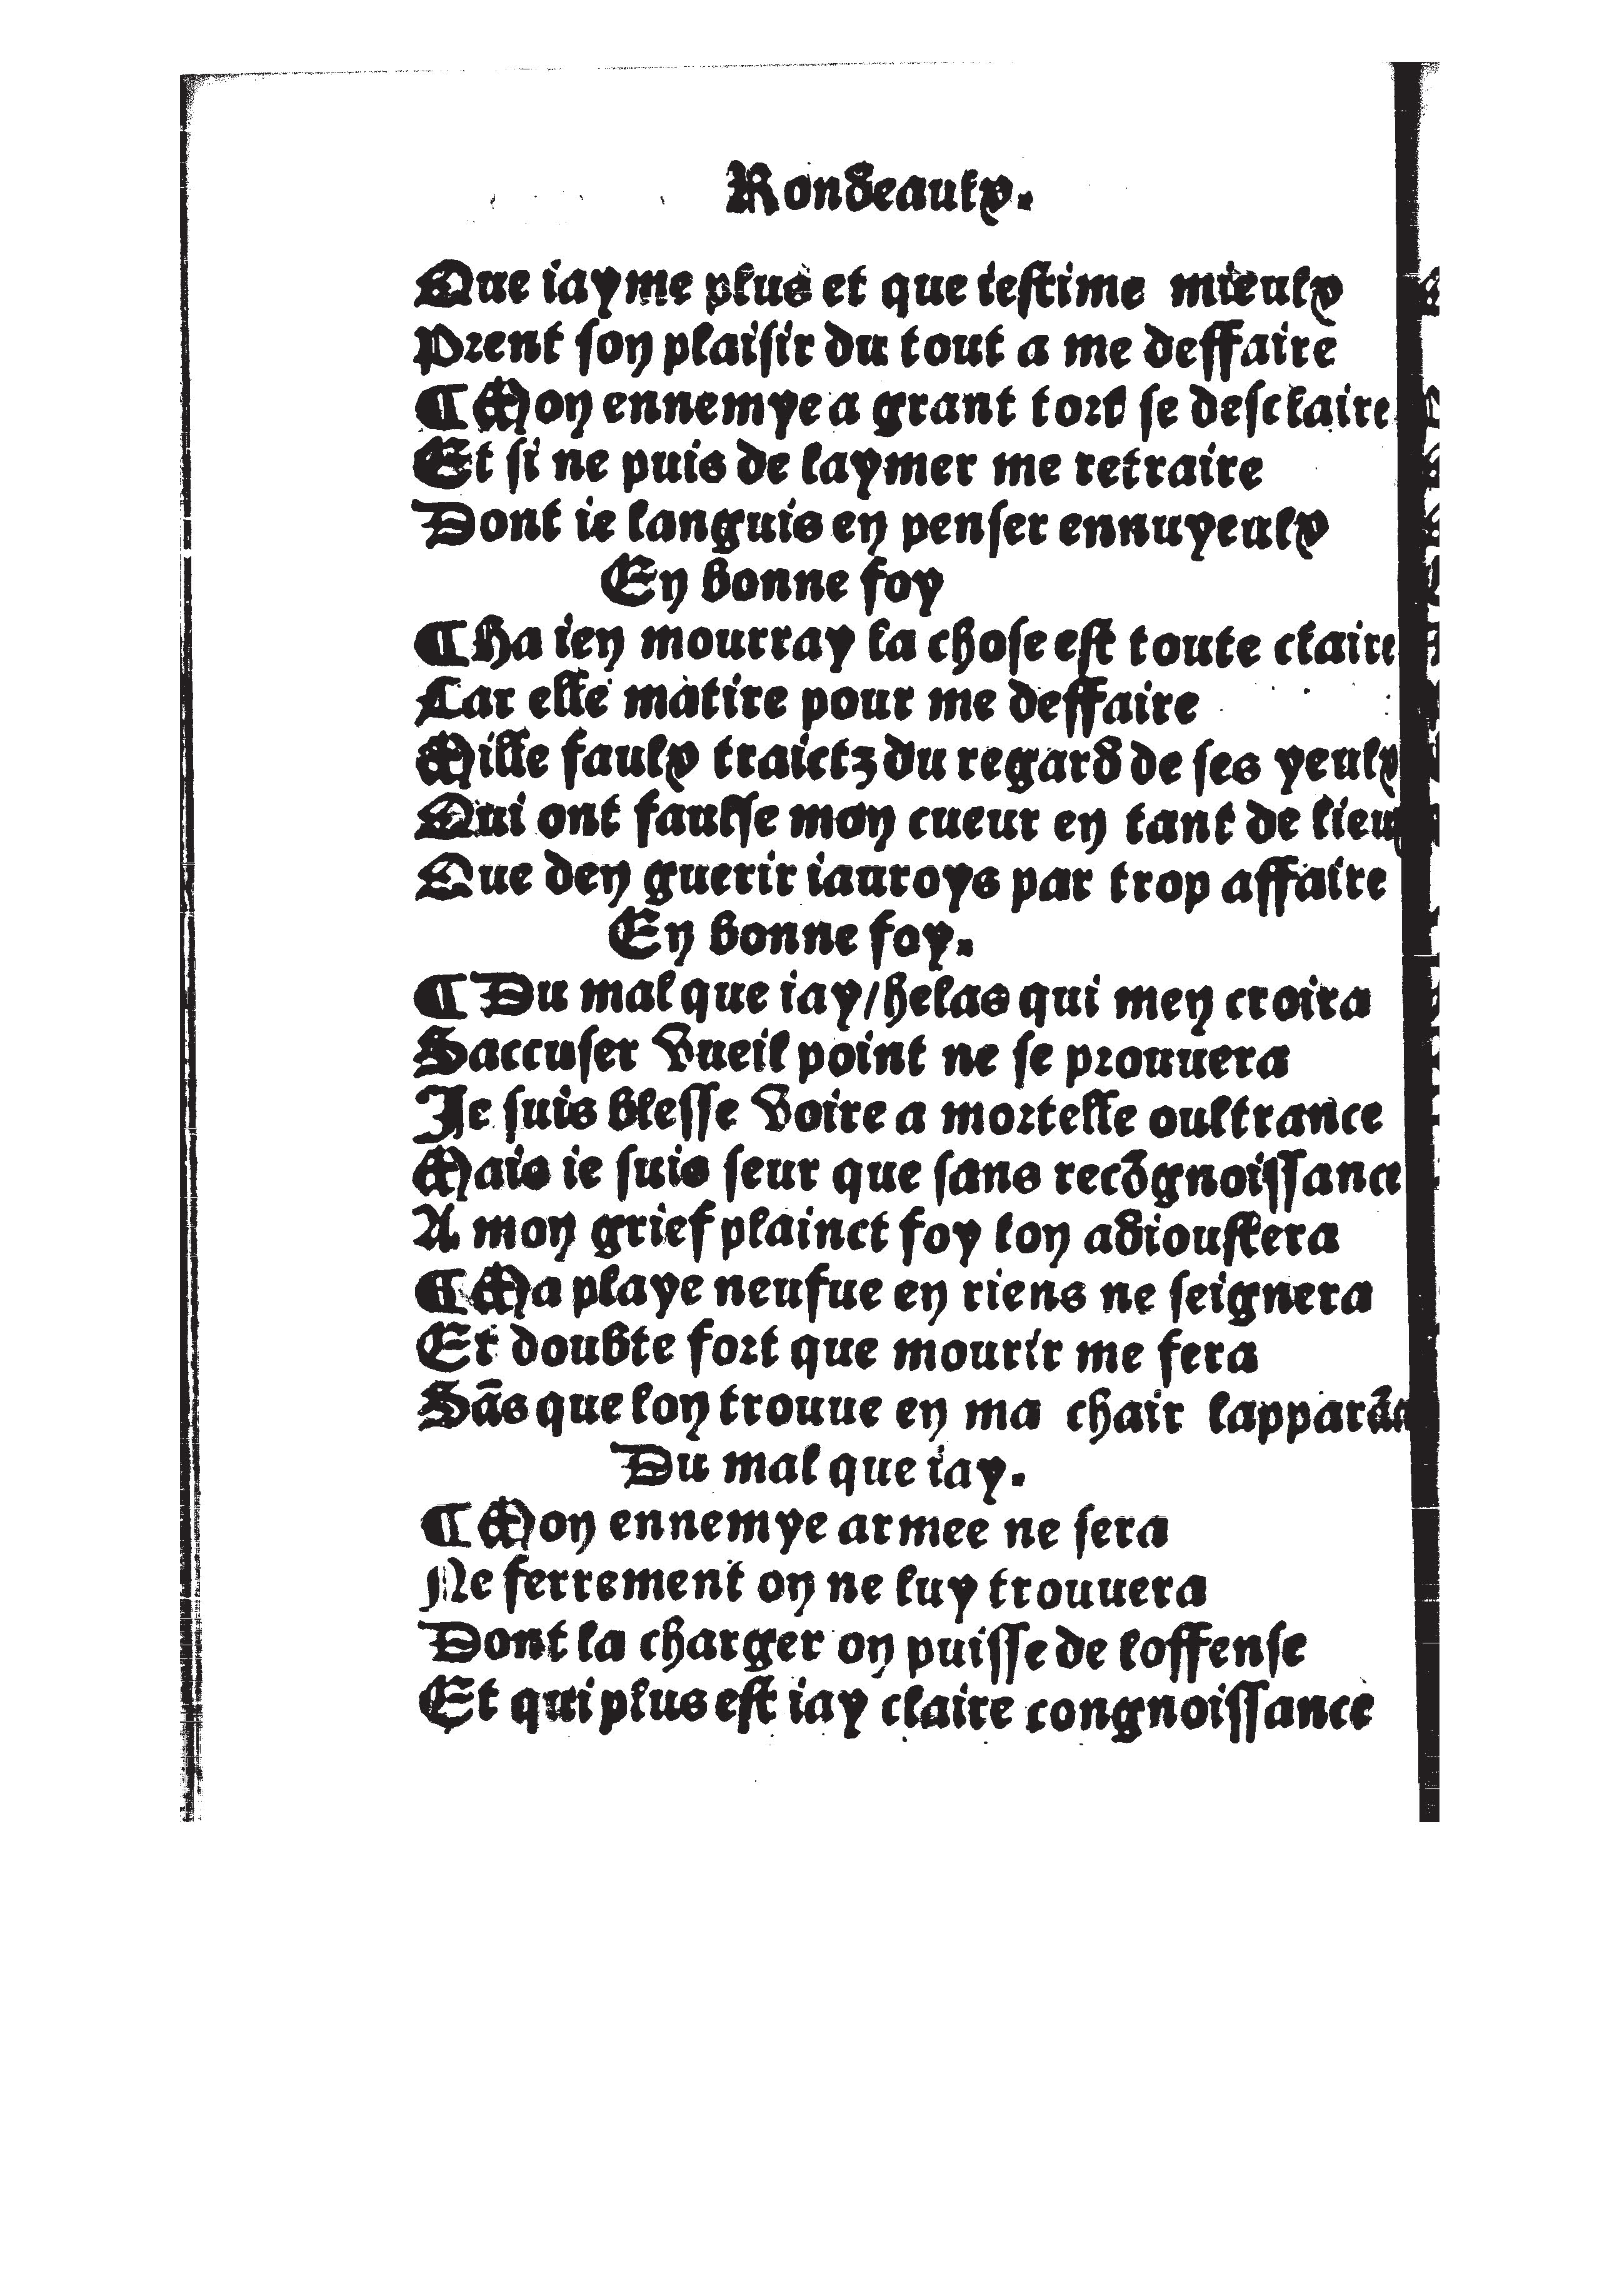 Rondeaulx.
Que iayme plus et que iestime mieulx
Prent son plaisir du tout a me deffaire
¶ Mon ennemye a grant tort se desclaire
Et si ne puis de laymer me retraire
Dont ie languis en penser ennuyeulx
En bonne foy
¶ Ha ien mourray la chose est toute claire
Car elle matire pour me deffaire
Mille faulx traictz du regard de ses yeulx
Qui ont faulse mon cueur en tant de lieux
Que den guerir iauroys par trop affaire
En bonne foy.
¶ Du mal que iay/helas qui men croira
Saccuser vueil point ne se prouuera
Je suis blesse voire a mortelle oultrance
Mais ie suis seur que sans recõgnoissance
A mon grief plainct foy lon adioustera
¶ Ma playe neufue en riens ne seignera
Et doubte fort que mourir me fera
Sãs que lon trouue en ma chair
Du mal que iay.
¶ Mon ennemye armee ne sera
Ne ferrement on ne luy trouuera
Dont la charger on puisse de loffense
Et qui plus est iay claire congnoissance